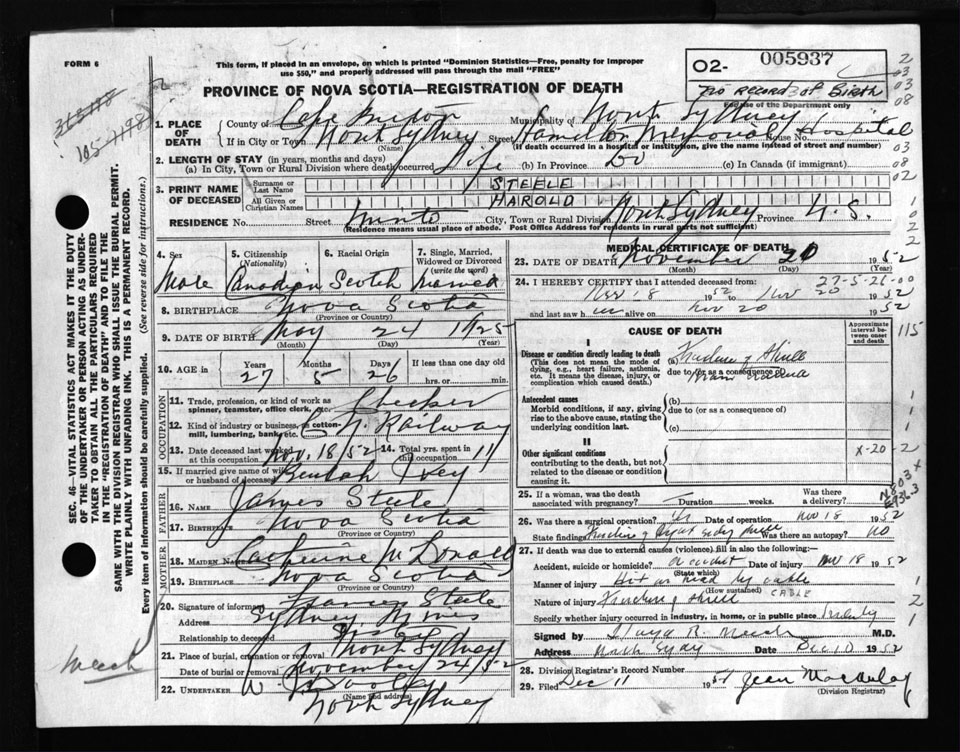 FORM 6
This form, if placed in an envelope, on which is printed "Dominion Statistics—Free, penalty for improper
use $50," and properly addressed will pass through the mail "FREE"
O2- 005937
NO RECORD OF BIRTH
For use of the Department only
PROVINCE OF NOVA SCOTIA—REGISTRATION OF DEATH
1. PLACE OF DEATH
County of Cape Breton Municipality of North Sydney
If in City or Town North Sydney Street Hamilton Memorial House No. Hospital
(Name) (If death occurred in a hospital or institution, give the name instead of street and number)
2. LENGTH OF STAY (in years, months and days)
(a) In City, Town or Rural Division where death occurred Life (b) In Province Do (c) In Canada (if immigrant)
3. PRINT NAME OF DECEASED
Surname or Last Name STEELE
All Given or Christian Names HAROLD
RESIDENCE No. Street Minto City, Town or Rural Division North Sydney Province N.S.
(Residence means usual place of abode. Post Office Address for residents in rural parts not sufficient)
4. Sex Male
5. Citizenship (Nationality) Canadian
6. Racial Origin Scotch
7. Single, Married, Widowed or Divorced (write the word) Married
8. BIRTHPLACE Nova Scotia
(Province or Country)
9. DATE OF BIRTH May 24 1925
(Month) (Day) (Year)
10. AGE in Years 27 Months 5 Days 26 If less than one day old hrs. or min.
OCCUPATION
11. Trade, profession, or kind of work as spinner, teamster, office clerk, etc. Checker
12. Kind of industry or business, as cotton-mill, lumbering, bank, etc. C. N. Railway
13. Date deceased last worked at this occupation Nov. 18 52 14. Total yrs. spent in this occupation 11
15. If married give name of wife or husband of deceased Beulah
FATHER
16. NAME James Steele
17. BIRTHPLACE Nova Scotia
(Province or Country)
MOTHER
18. MAIDEN NAME Catherine McDonald
19. BIRTHPLACE Nova Scotia
(Province or Country)
20. Signature of informant Steele
Address Sydney Mines
Relationship to deceased
21. Place of burial, cremation or removal North Sydney
Date of burial or removal November 24/52
22. UNDERTAKER
(Name and address)
North Sydney
MEDICAL CERTIFICATE OF DEATH
23. DATE OF DEATH November 20 1952
(Month) (Day) (Year)
27-5-26-00
24. I HEREBY CERTIFY that I attended deceased from:
Nov 18 1952 to Nov 20 1952
and last saw him alive on Nov 20 1952
CAUSE OF DEATH
Approximate interval between onset and death
I
Disease or condition directly leading to death
(This does not mean the mode of dying, e.g., heart failure, asthenia, etc. It means the disease, injury, or complication which caused death.)
(a) Fracture of Skull
due to (or as a consequence of)
Antecedent causes
Morbid conditions, if any, giving rise to the above cause, stating the underlying condition last.
(b)
due to (or as a consequence of)
(c)
II
Other significant conditions contributing to the death, but not related to the disease or condition causing it.
X-20
25. If a woman, was the death associated with pregnancy? Duration weeks. Was there a delivery?
26. Was there a surgical operation? Yes Date of operation Nov 18 1952
State findings Fracture of right side skull Was there an autopsy? No
27. If death was due to external causes (violence) fill in also the following:
Accident, suicide or homicide? Accident Date of injury Nov 18 1952
(State which)
Manner of injury Hit on head by cable
(How sustained) CABLE
Nature of injury Fracture of skull
Specify whether injury occurred in industry, in home, or in public place Industry
Signed by M.D.
Address North Sydney Date Dec 10 1952
28. Division Registrar's Record Number
29. Filed Dec 11 1952 Jean
(Division Registrar)
SEC. 46—VITAL STATISTICS ACT MAKES IT THE DUTY
OF THE UNDERTAKER OR PERSON ACTING AS UNDERTAKER TO OBTAIN ALL THE PARTICULARS REQUIRED
IN THE "REGISTRATION OF DEATH" AND TO FILE THE
SAME WITH THE DIVISION REGISTRAR WHO SHALL ISSUE THE BURIAL PERMIT.
WRITE PLAINLY WITH UNFADING INK. THIS IS A PERMANENT RECORD.
Every item of information should be carefully supplied. (See reverse side for instructions.)